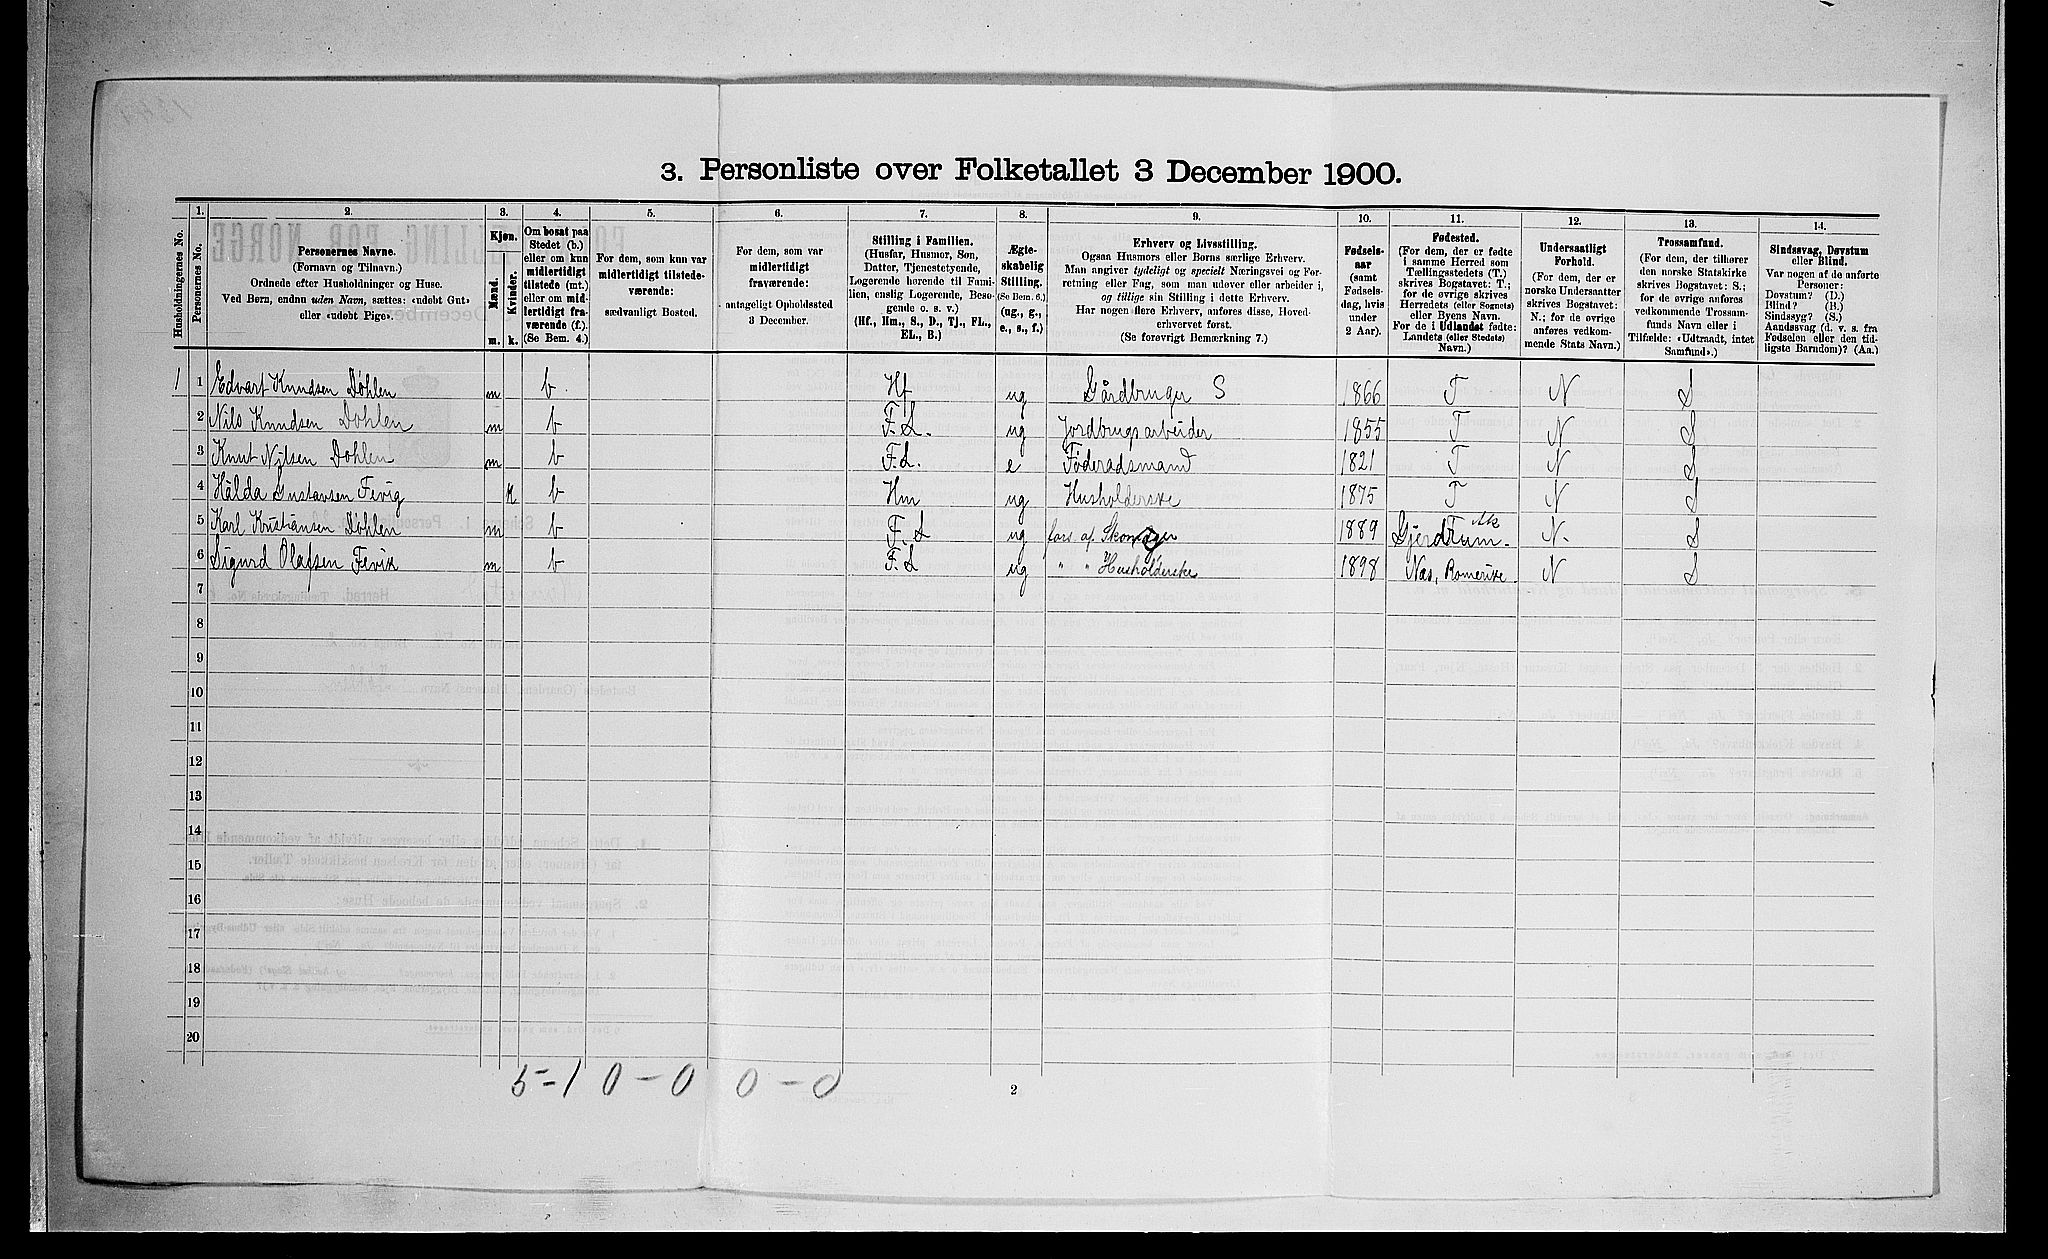 3. Personliste over Folketallet 3 December 1900.
Husholdningernes No.
1.
Personernes No.
2.
Personernes Navne.
(Fornavn og Tilnavn.)
Ordnede efter Husholdninger og Huse.
Ved Børn, endnu uden Navn, sættes: «udøbt Gut»
eller «udøbt Pige».
3.
Kjøn.
Mænd.
Kvinder.
m. k.
4.
Om bosat paa
Stedet (b.)
eller om kun
midlertidigt
tilstede (mt.)
eller om mid-
lertidigt fra-
værende (f.).
(Se Bem. 4.)
5.
For dem, som kun var
midlertidigt tilstede-
værende:
sædvanligt Bosted.
6.
For dem, som var
midlertidigt
fraværende:
antageligt Opholdssted
3 December.
7.
Stilling i Familien.
(Husfar, Husmor, Søn,
Datter, Tjenestetyende,
Logerende hørende til Fami-
lien, enslig Logerende, Besø-
gende o. s. v.)
(Hf., Hm., S., D., Tj., FL.,
EL., B.)
8.
Ægte-
skabelig
Stilling.
(Se Bem. 6.)
(ug., g.,
e., s., f.)
9.
Erhverv og Livsstilling.
Ogsaa Husmors eller Børns særlige Erhverv.
Man angiver tydeligt og specielt Næringsvei og For-
retning eller Fag, som man udøver eller arbeider i,
og tillige sin Stilling i dette Erhverv.
Har nogen flere Erhverv, anføres disse, Hoved-
erhvervet først.
(Se forøvrigt Bemærkning 7.)
10.
Fødsels-
aar
(samt
Fødsels-
dag, hvis
under
2 Aar).
11.
Fødested.
(For dem, der er fødte
i samme Herred som
Tællingsstedets (T.)
skrives Bogstavet: T.;
for de øvrige skrives
Herredets (eller Sognets)
eller Byens Navn.
For de i Udlandet fødte:
Landets (eller Stedets)
Navn.)
12.
Undersaatligt
Forhold.
(For dem, der er
norske Undersaatter
skrives Bogstavet:
N.; for de øvrige
anføres vedkom-
mende Stats Navn.)
13.
Trossamfund.
(For dem, der tilhører
den norske Statskirke
skrives Bogstavet: S.;
for de øvrige anføres
vedkommende Trossam-
funds Navn eller i
Tilfælde: «Udtraadt, intet
Samfund».)
14.
Sindssvag, Døvstum
eller Blind.
Var nogen af de anførte
Personer:
Døvstum? (D.)
Blind? (B.)
Sindssyg? (S.)
Aandssvag (d. v. s. fra
Fødselen eller den tid-
ligste Barndom)? (Aa.)
1 1 Edvart Knudsen Døhlen m b. Hf ug Gårdbruger S 1866 T N S
2 Nils Knudsen Dohlen m b F.L. ug Jordbrugsarbeider 1855 T N S
3 Knut Nilsen Dohlen m b F.L. e Föderadsmand 1821 T N S
4 Hälda Gustavsen Fevig K b Hm ug Husholderske 1875 T N S
5 Karl Kristiansen Döhlen m b F.L ug fors. af 1889 Gjerdrum. Ak N. S
6 Sigurd Olafsen Fevik m b F.L ug " " Husholderske 1898 Nas, Romerike. N S
7
8
9
10
11
12
13
14
15
16
17
18
19
20
5-1 0-0 0-0
2